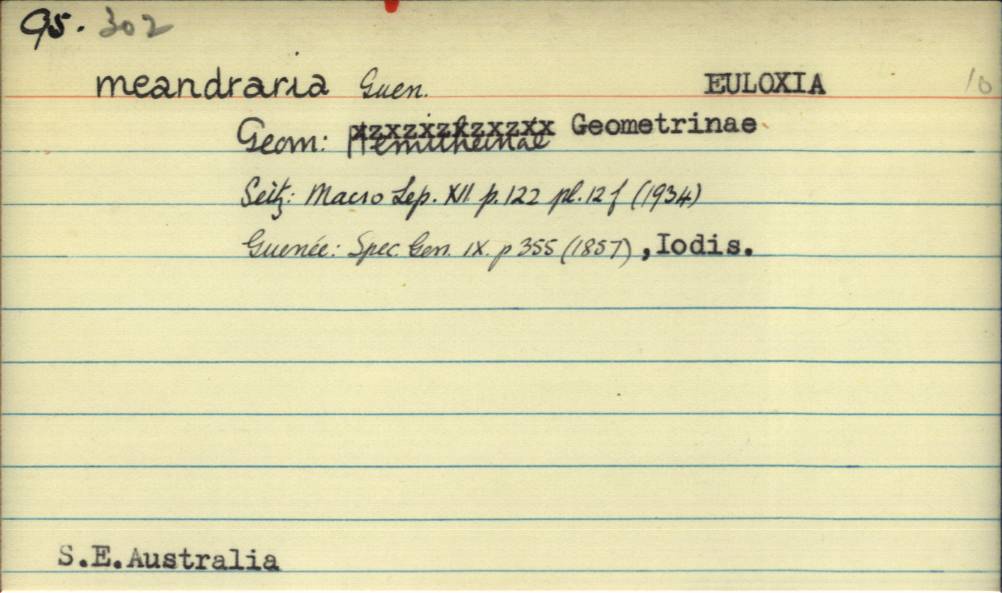 95. 302
meandraria Guen. EULOXIA 10
Geom: Hemitheinae Geometrinae
Seitz: Macro Lep. XII p. 122 pl. 12 f (1934)
Guenée: Spec. Gen. IX. p 355 (1857), Iodis.
S.E.Australia